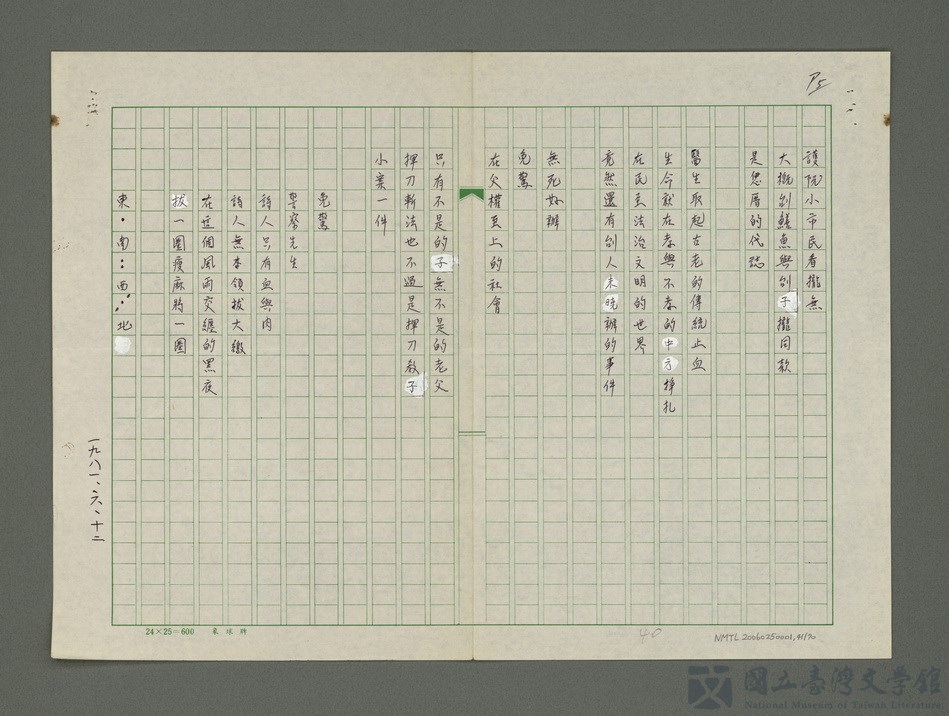 P5
護阮小市民者攏無
大概刣鱔魚與刣子攏同款
是您厝的代誌
醫生取起古老的傳統止血
生命就在孝與不孝的中亦掙扎
在民主法治文明的世界
竟然還有刣人未曉辦的事件
無死好辦
免驚
在父權至上的社會
只有不是的子無不是的老父
揮刀斬法也不過是揮刀教子
小案一件
免驚
警察先生
詩人只有血與肉
詩人無本領拔大纛
在這個風雨交纏的黑夜
拔一圈痲痲將一圈
東·南:西∴北
一九八一、六、十二
24×25=600
40
NMTL20060250001,41/70
國立臺灣文學館
National Museum of Taiwan Literature